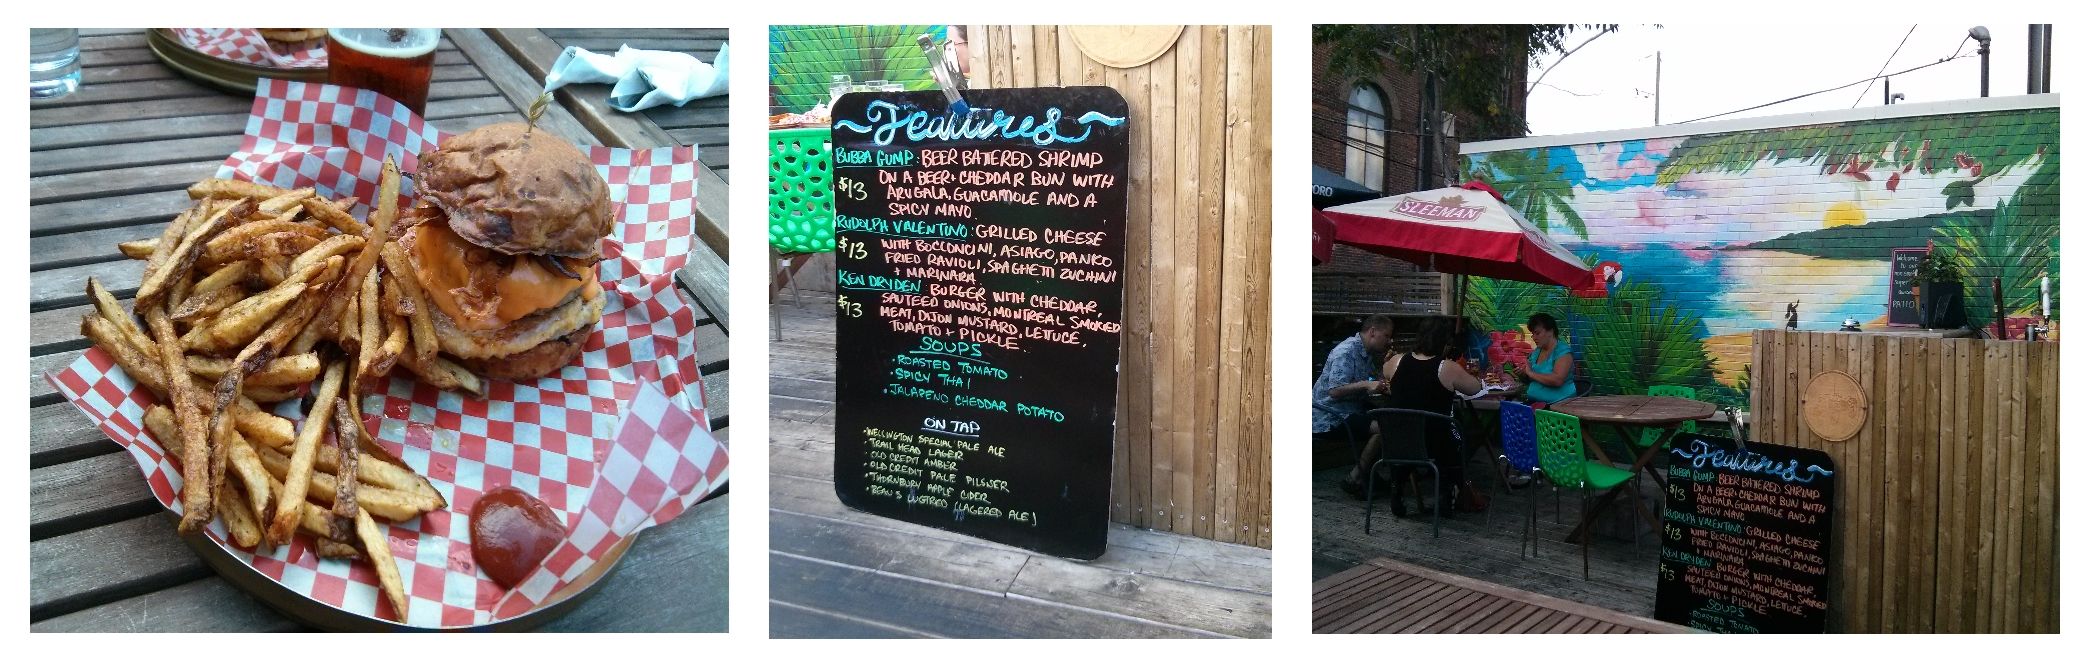 Features
BUBBA GUMP: BEER BATTERED SHRIMP
$13 ON A BEER + CHEDDAR BUN WITH
ARUGALA, GUACAMOLE AND A
SPICY MAYO
RUDOLPH VALENTINO: GRILLED CHEESE
$13 WITH BOCCONCINI, ASIAGO, PANKO
FRIED RAVIOLI, SPAGHETTI ZUCHINI
+ MARINARA.
KEN DRYDEN BURGER WITH CHEDDAR,
$13 SAUTEED ONIONS, MONTREAL SMOKED
MEAT, DIJON MUSTARD, LETTUCE,
TOMATO + PICKLE.
SOUPS
• ROASTED TOMATO
• SPICY THAI
• JALAPENO CHEDDAR POTATO
ON TAP
• WELLINGTON SPECIAL PALE ALE
• TRAIL HEAD LAGER
• OLD CREDIT AMBER
• OLD CREDIT PALE PILSNER
• THORNBURY APPLE CIDER
• BEAU'S LUGTRED (LAGERED ALE)
SLEEMAN
Welcome
to our
super
PATIO
Features
BUBBA GUMP: BEER BATTERED SHRIMP
$13 ON A BEER + CHEDDAR BUN WITH
ARUGALA, GUACAMOLE AND A
SPICY MAYO
RUDOLPH VALENTINO: GRILLED CHEESE
$13 WITH BOCCONCINI, ASIAGO, PANKO
FRIED RAVIOLI, SPAGHETTI ZUCHINI
+ MARINARA.
KEN DRYDEN BURGER WITH CHEDDAR,
$13 SAUTEED ONIONS, MONTREAL SMOKED
MEAT, DIJON MUSTARD, LETTUCE,
TOMATO + PICKLE
SOUPS
• ROASTED TOMATO
• SPICY THAI